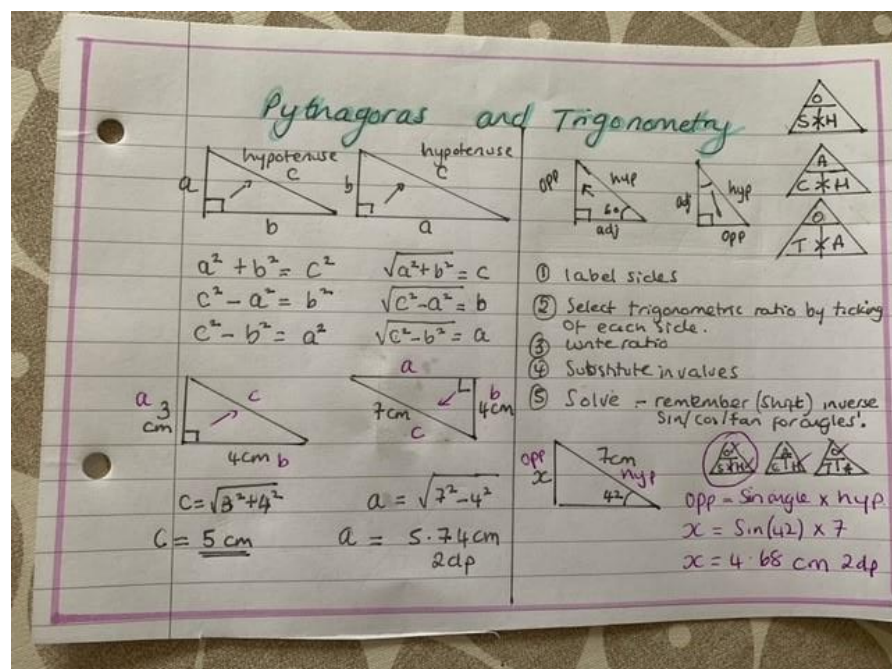 Pythagoras and Trigonometry
a
hypotenuse
c
b
b
hypotenuse
c
a
a² + b² = c²
√a² + b² = c
c² - a² = b²
√c² - a² = b
c² - b² = a²
√c² - b² = a
a 3 cm
c
4cm b
a
7cm
c
b
4cm
c = √3² + 4²
a = √7² - 4²
c = 5 cm
a = 5.74cm
2dp
O
S H
A
C H
O
T A
opp
hyp
60
adj
adj
hyp
opp
① label sides
② Select trigonometric ratio by ticking
of each side.
③ write ratio
④ Substitute in values
⑤ Solve - remember (shift) inverse
Sin/cos/tan for angles'.
opp
x
7cm
hyp
42
O
S H
A
C H
O
T A
opp = Sin angle x hyp
x = Sin(42) x 7
x = 4.68 cm 2dp